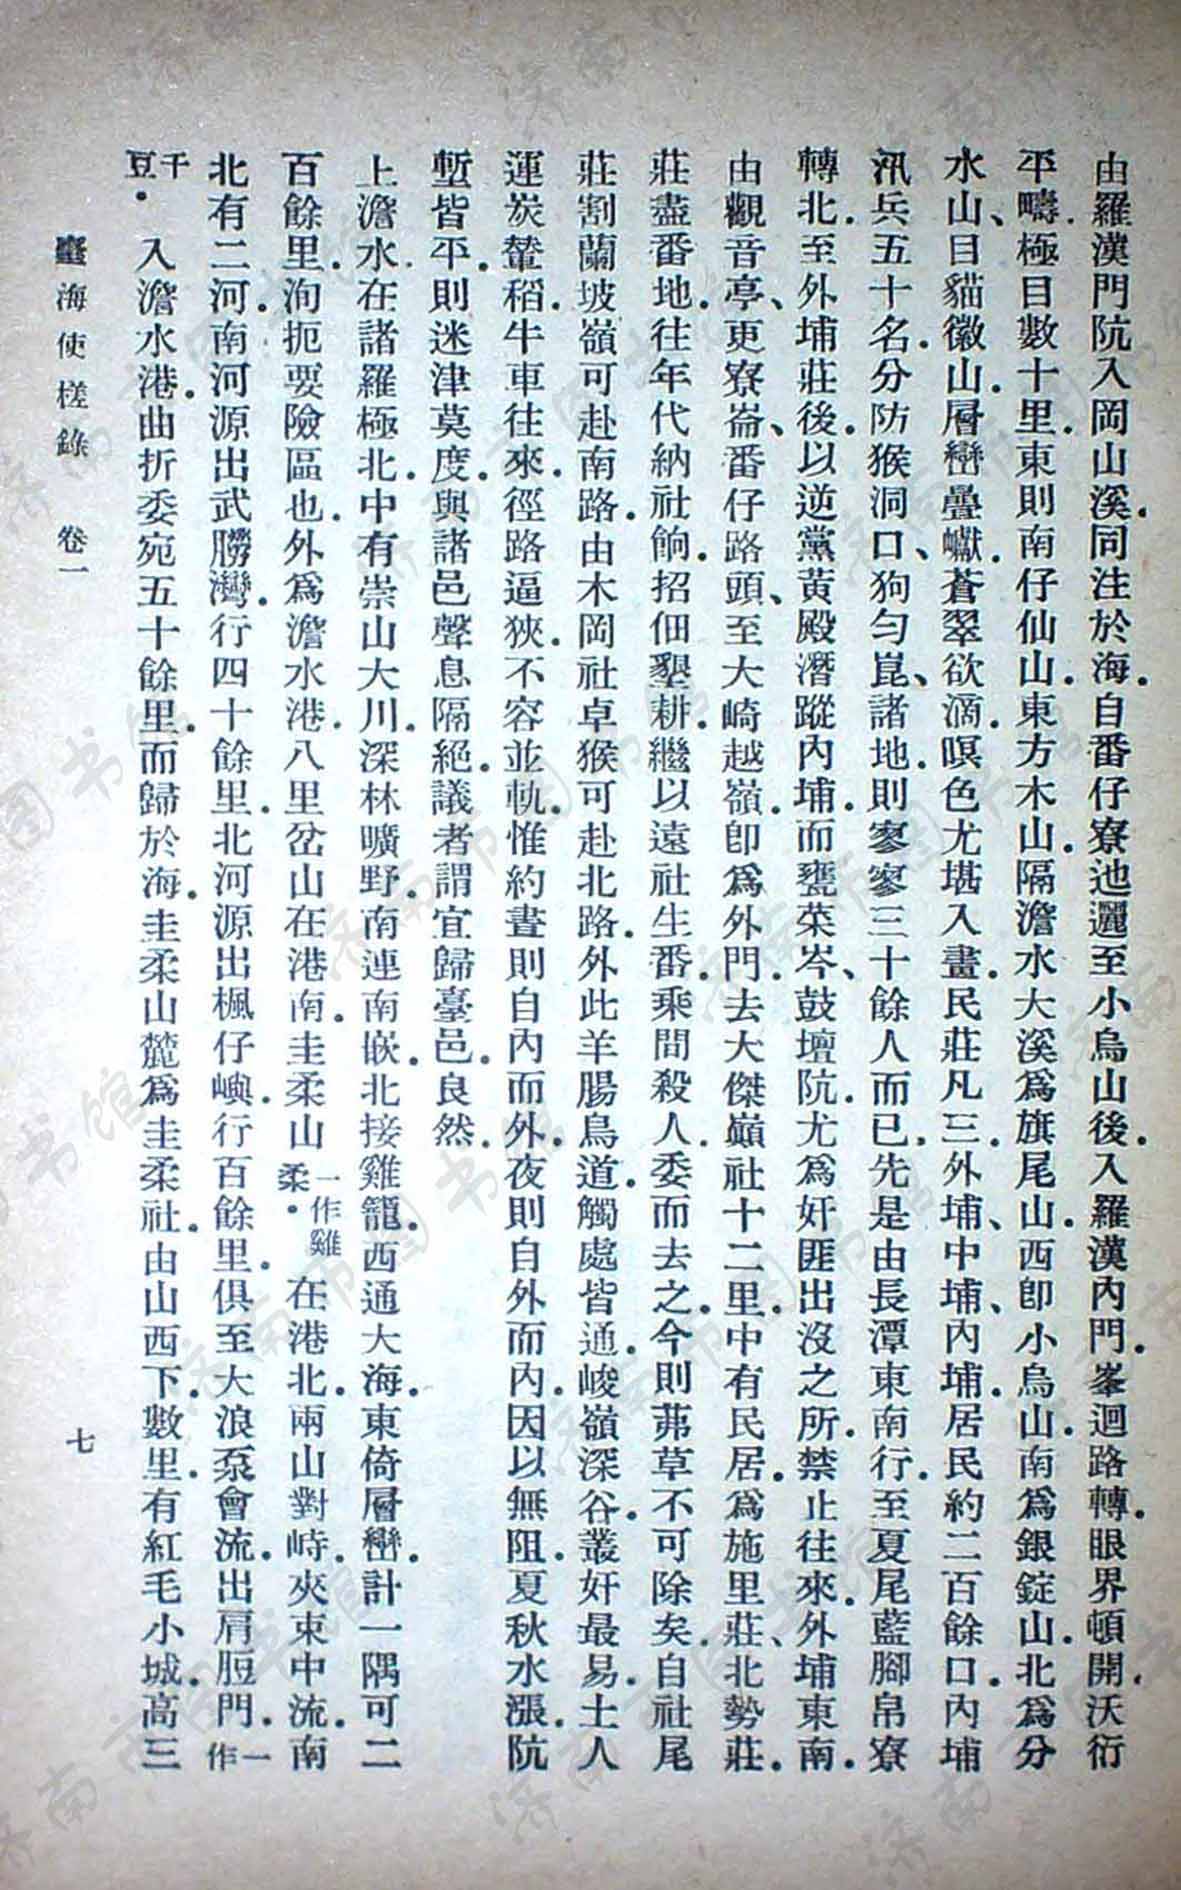 由羅漢門阬入岡山溪.同注於海.自番仔寮迆邐至小烏山後.入羅漢內門.峯迴路轉.眼界頓開.沃衍
平疇.極目數十里.東則南仔仙山.東方木山.隔澹水大溪爲旗尾山.西卽小烏山.南爲銀錠山.北爲分
水山、曰貓徽山.層巒疊巘.蒼翠欲滴.暝色尤堪入畫.民莊凡三.外埔、中埔、內埔.居民約二百餘口.內埔
汛兵五十名.分防猴洞口、狗勻崑、諸地.則寥寥三十餘人而已.先是由長潭東南行.至夏尾藍腳帛寮
轉北.至外埔莊後.以逆黨黃殿潛蹤內埔.而甕菜岑、鼓壇阬.尤爲奸匪出沒之所.禁止往來.外埔東南.
由觀音亭、更寮崙、番仔路頭、至大崎越嶺.卽爲外門.去大傑巔社十二里.中有民居.爲施里莊、北勢莊.
莊盡番地.往年代納社餉.招佃墾耕.繼以遠社生番.乘間殺人.委而去之.今則茀草不可除矣.自社尾
莊割蘭坡嶺可赴南路.由木岡社卓猴可赴北路.外此羊腸鳥道.觸處皆通.峻嶺深谷.叢奸最易.土人
運炭輦稻.牛車往來.徑路逼狹.不容並軌.惟約晝則自內而外.夜則自外而內.因以無阻.夏秋水漲.阬
塹皆平.則迷津莫度.與諸邑聲息隔絕.議者謂宜歸臺邑.良然.
上澹水.在諸羅極北.中有崇山大川.深林曠野.南連南嵌.北接雞籠.西通大海.東倚層巒.計一隅可二
百餘里.洵扼要險區也.外爲澹水港.八里坌山在港南.圭柔山一作雞柔.在港北.兩山對峙.夾束中流.南
北有二河.南河源出武朥灣.行四十餘里.北河源出楓仔嶼.行百餘里.俱至大浪泵會流.出肩脰門.一作
干豆.入澹水港.曲折委宛五十餘里.而歸於海.圭柔山麓爲圭柔社.由山西下.數里.有紅毛小城.高三
臺海使槎錄 卷一
七